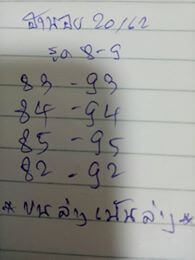 20/62
รูด 8-9
83 - 93
84 - 94
85 - 95
82 - 92
* บนล่าง เน้นล่าง *